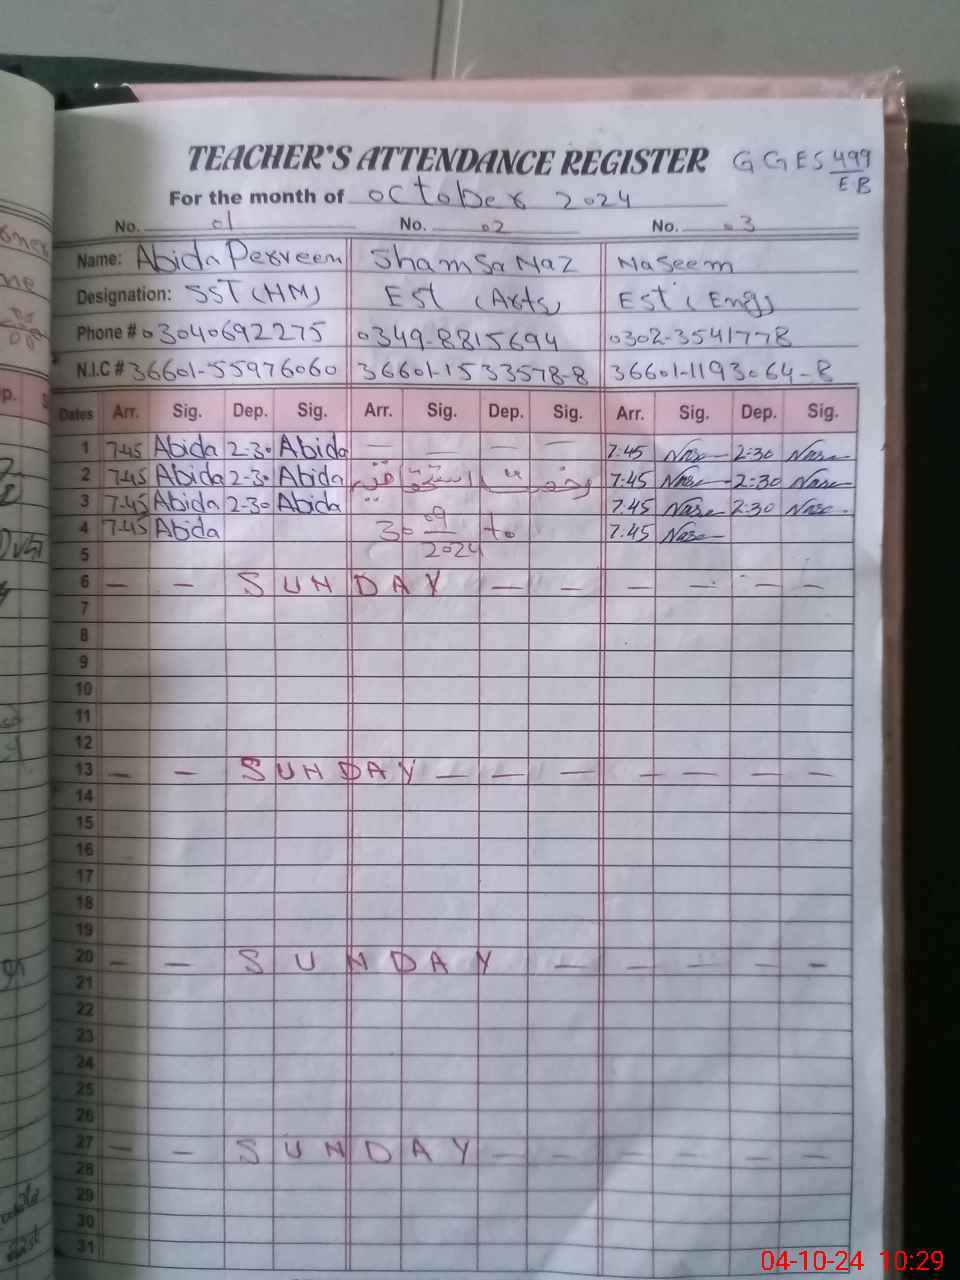 TEACHER'S ATTENDANCE REGISTER GGES 499/EB
For the month of October 2024
No. 01 No. 02 No. 03
Name: Abida Perveen Shamsa Naz Naseem
Designation: SST (HM) Est (Arts) Est (Eng)
Phone # 03040692275 0349-8815694 0302-3541778
N.I.C # 36601-55976060 36601-1533578-8 36601-1193064-8
Dates Arr. Sig. Dep. Sig. Arr. Sig. Dep. Sig. Arr. Sig. Dep. Sig.
1 7-45 Abida 2-30 Abida — — — — 7:45 Nase 2:30 Nase
2 7-45 Abida 2-30 Abida رخصت استحقاقیہ 7:45 Nase 2:30 Nase
3 7-45 Abida 2-30 Abida 7:45 Nase 2:30 Nase
4 7-45 Abida 30 09/2024 to 7:45 Nase
5
6 — — SUNDAY — — — — — —
7
8
9
10
11
12
13 — — SUNDAY — — — — — — —
14
15
16
17
18
19
20 — — SUNDAY — — — — —
21
22
23
24
25
26
27 — — SUNDAY — — — — — —
28
29
30
31
04-10-24 10:29